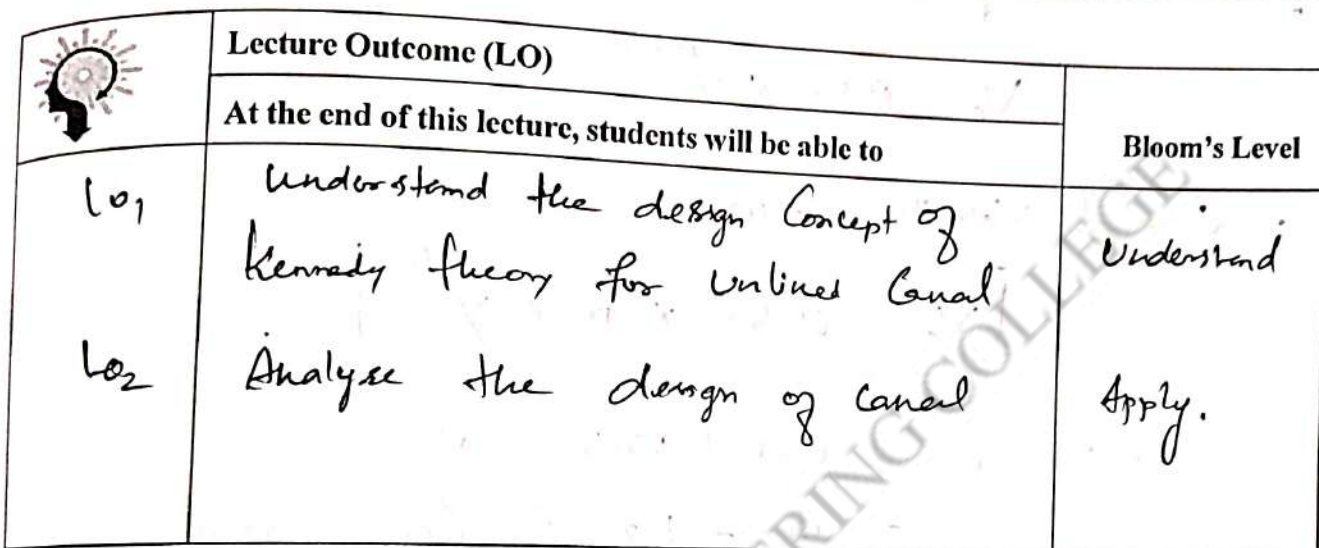 Lecture Outcome (LO)
At the end of this lecture, students will be able to
Bloom's Level
LO1 Understand the design Concept of
Kennedy theory for Unlined Canal
Understand
LO2 Analyse the design of canal Apply.
RING COLLEGE